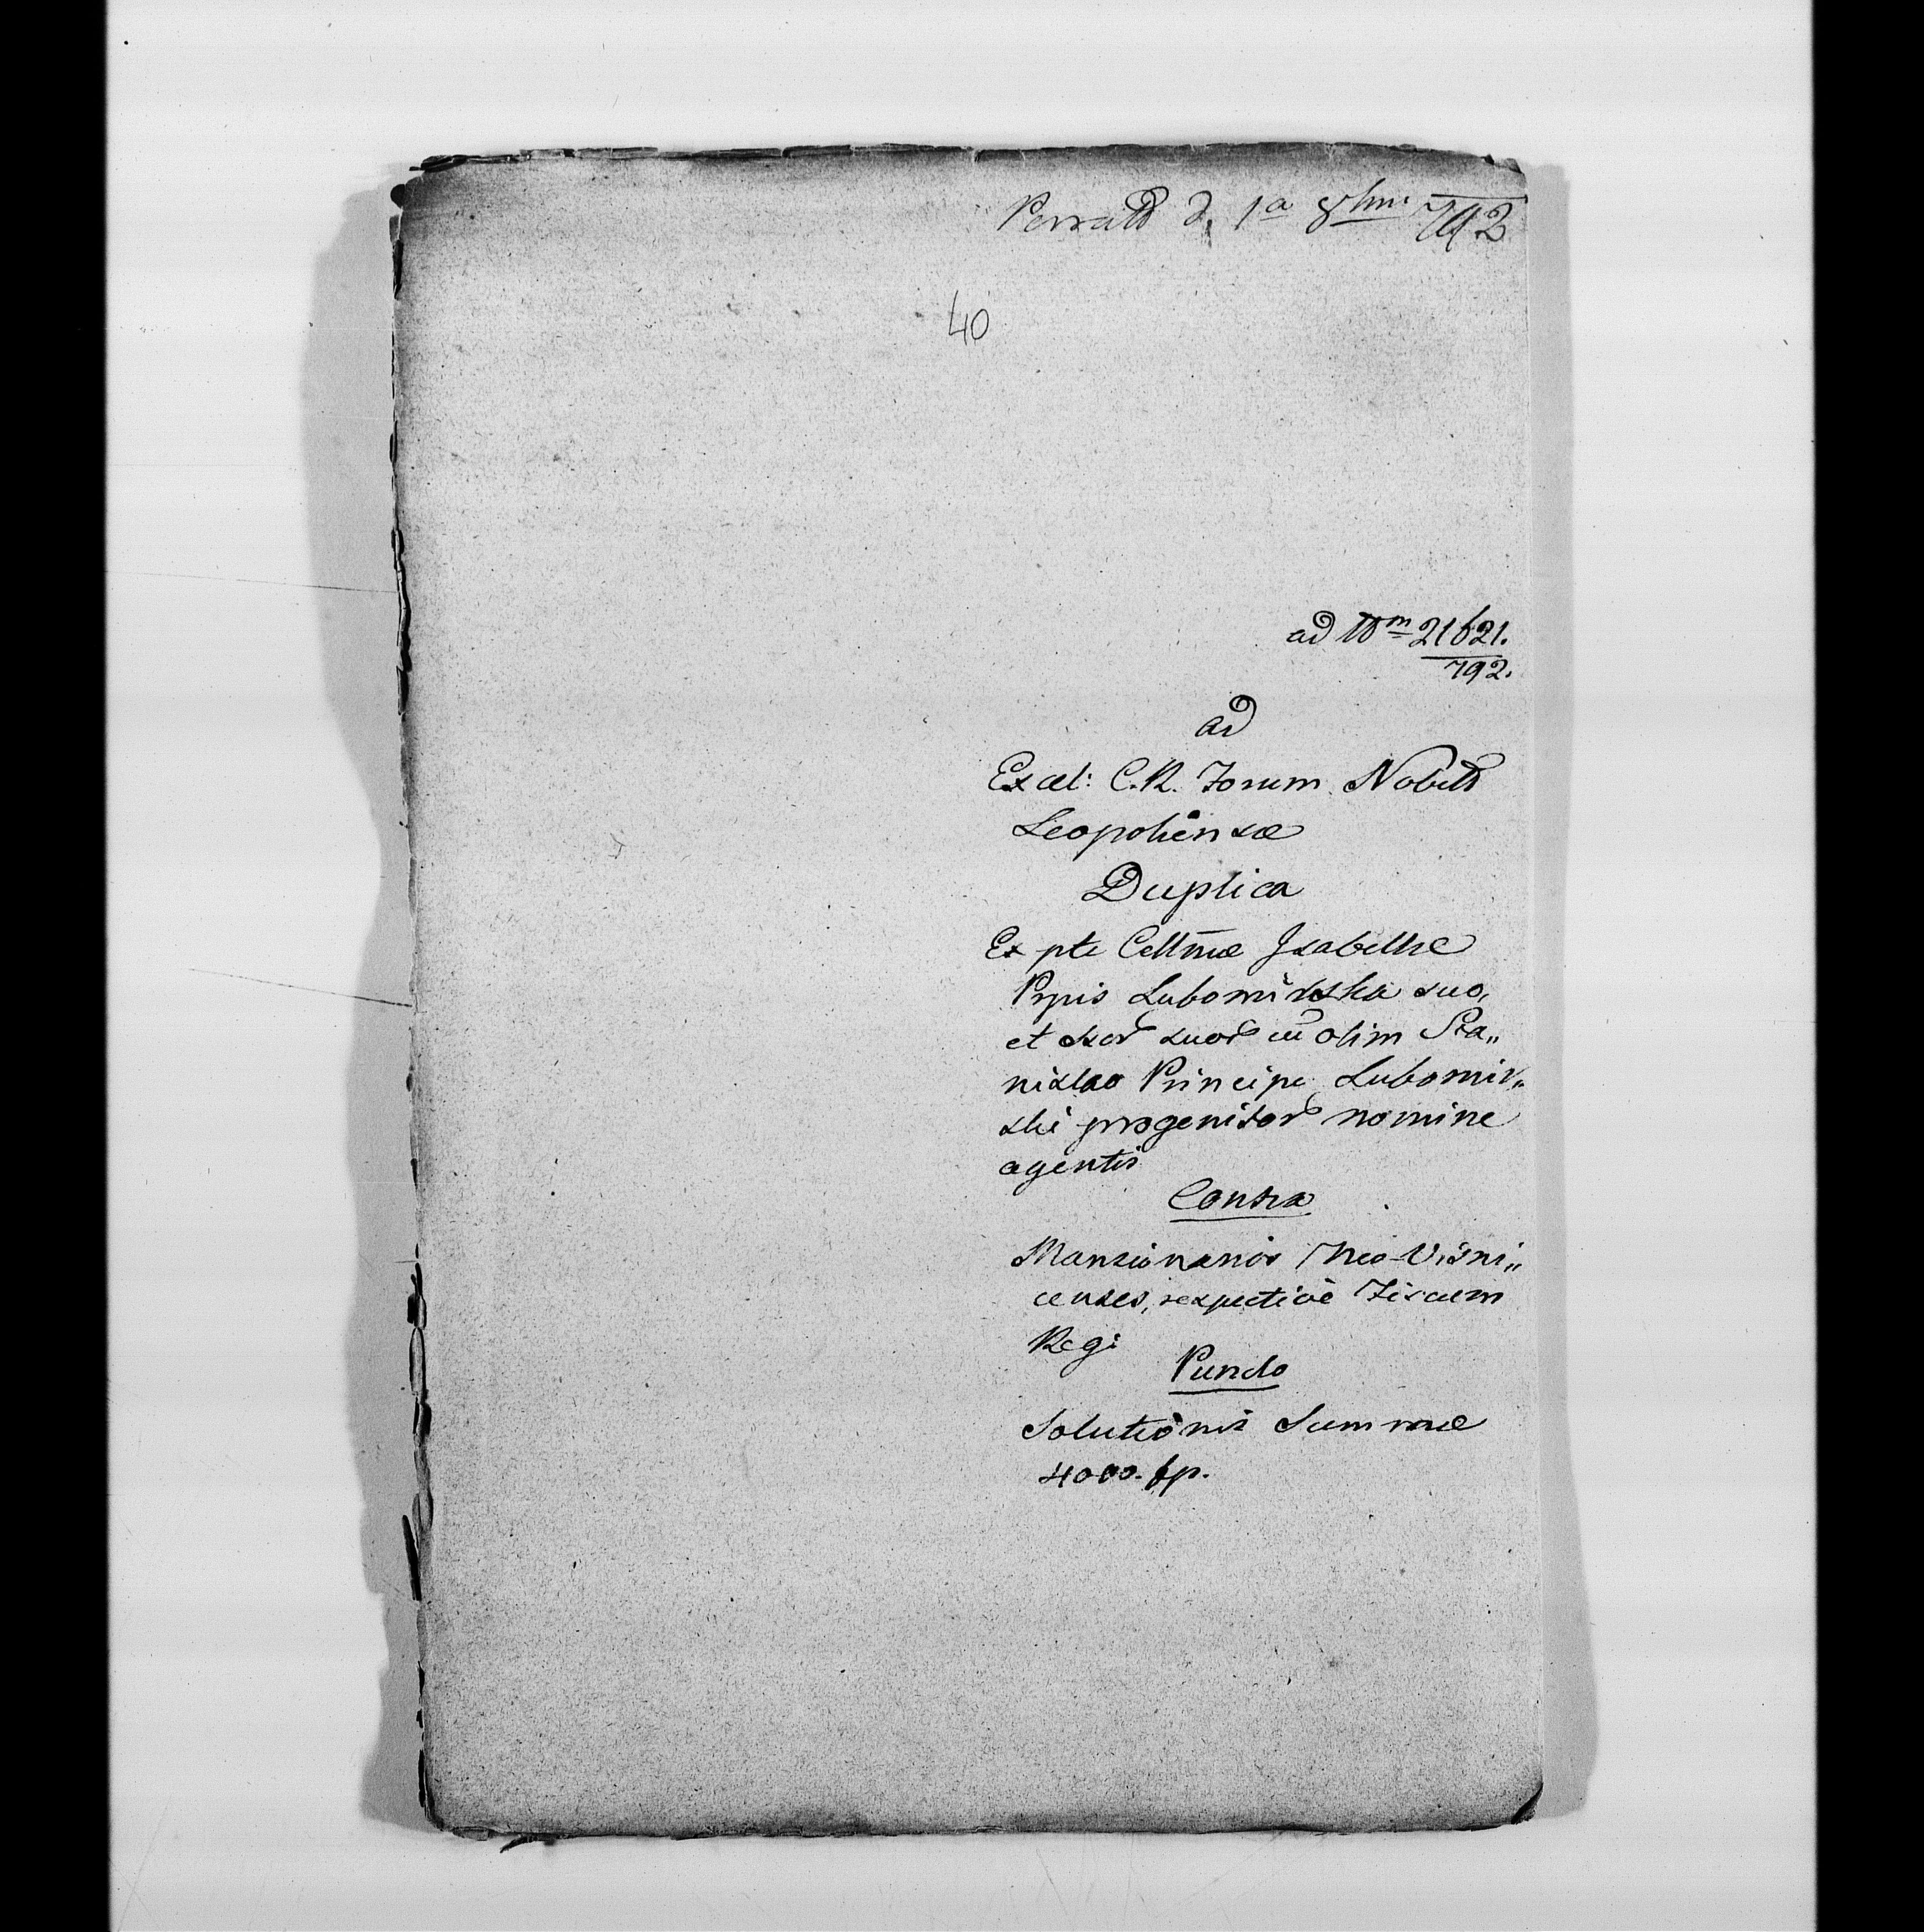 d. 1a 8bris 792
40
ad Num 21621.
792.
ad
Excel: C.R. Forum Nobile
Leopoliense
Duplica
Ex pte Cellmae Isabellae
Ppis Lubomirska suo,
et suor cu olim Sta„
nislao Principe Lubomir„
ski progenitor nomine
agentis
Contra
Mansionarios Neo-Visni„
censes, respective Fiscum
Regi
Puncto
Solutionis Summae
4000. fp.